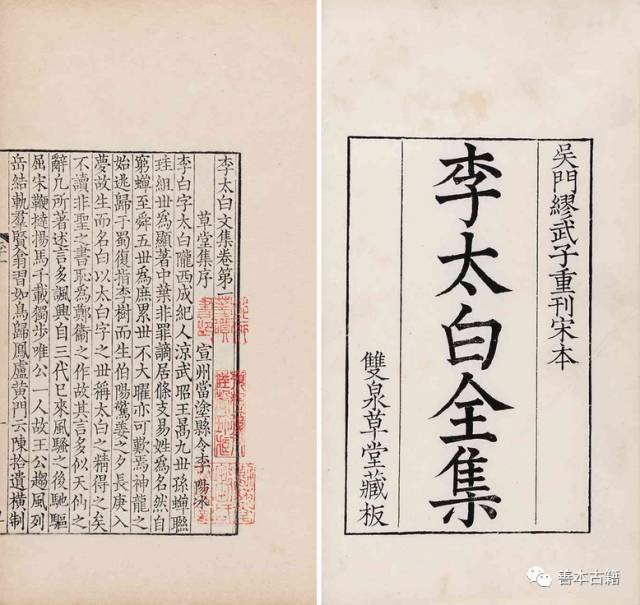 吳門繆武子重刊宋本
李太白全集
雙泉草堂藏板
李太白文集卷第
草堂集序
宣州當塗縣令李陽冰
李白字太白隴西成紀人涼武昭王暠九世孫蟬聯
珪組世爲顯著中葉非罪謫居條支易姓爲名然自
窮蟬至舜五世爲庶累世不大曜亦可歎焉神龍之
始逃歸于蜀復指李樹而生伯陽驚姜之夕長庚入
夢故生而名白以太白字之世稱太白之精得之矣
不讀非聖之書恥爲鄭衞之作故其言多似天仙之
辭凡所著述言多諷興自三代已來風騷之後馳驅
屈宋鞭撻揚馬千載獨步唯公一人故王公趨風列
岳結軌羣賢翕習如鳥歸鳳盧黃門云陳拾遺橫制
善本古籍